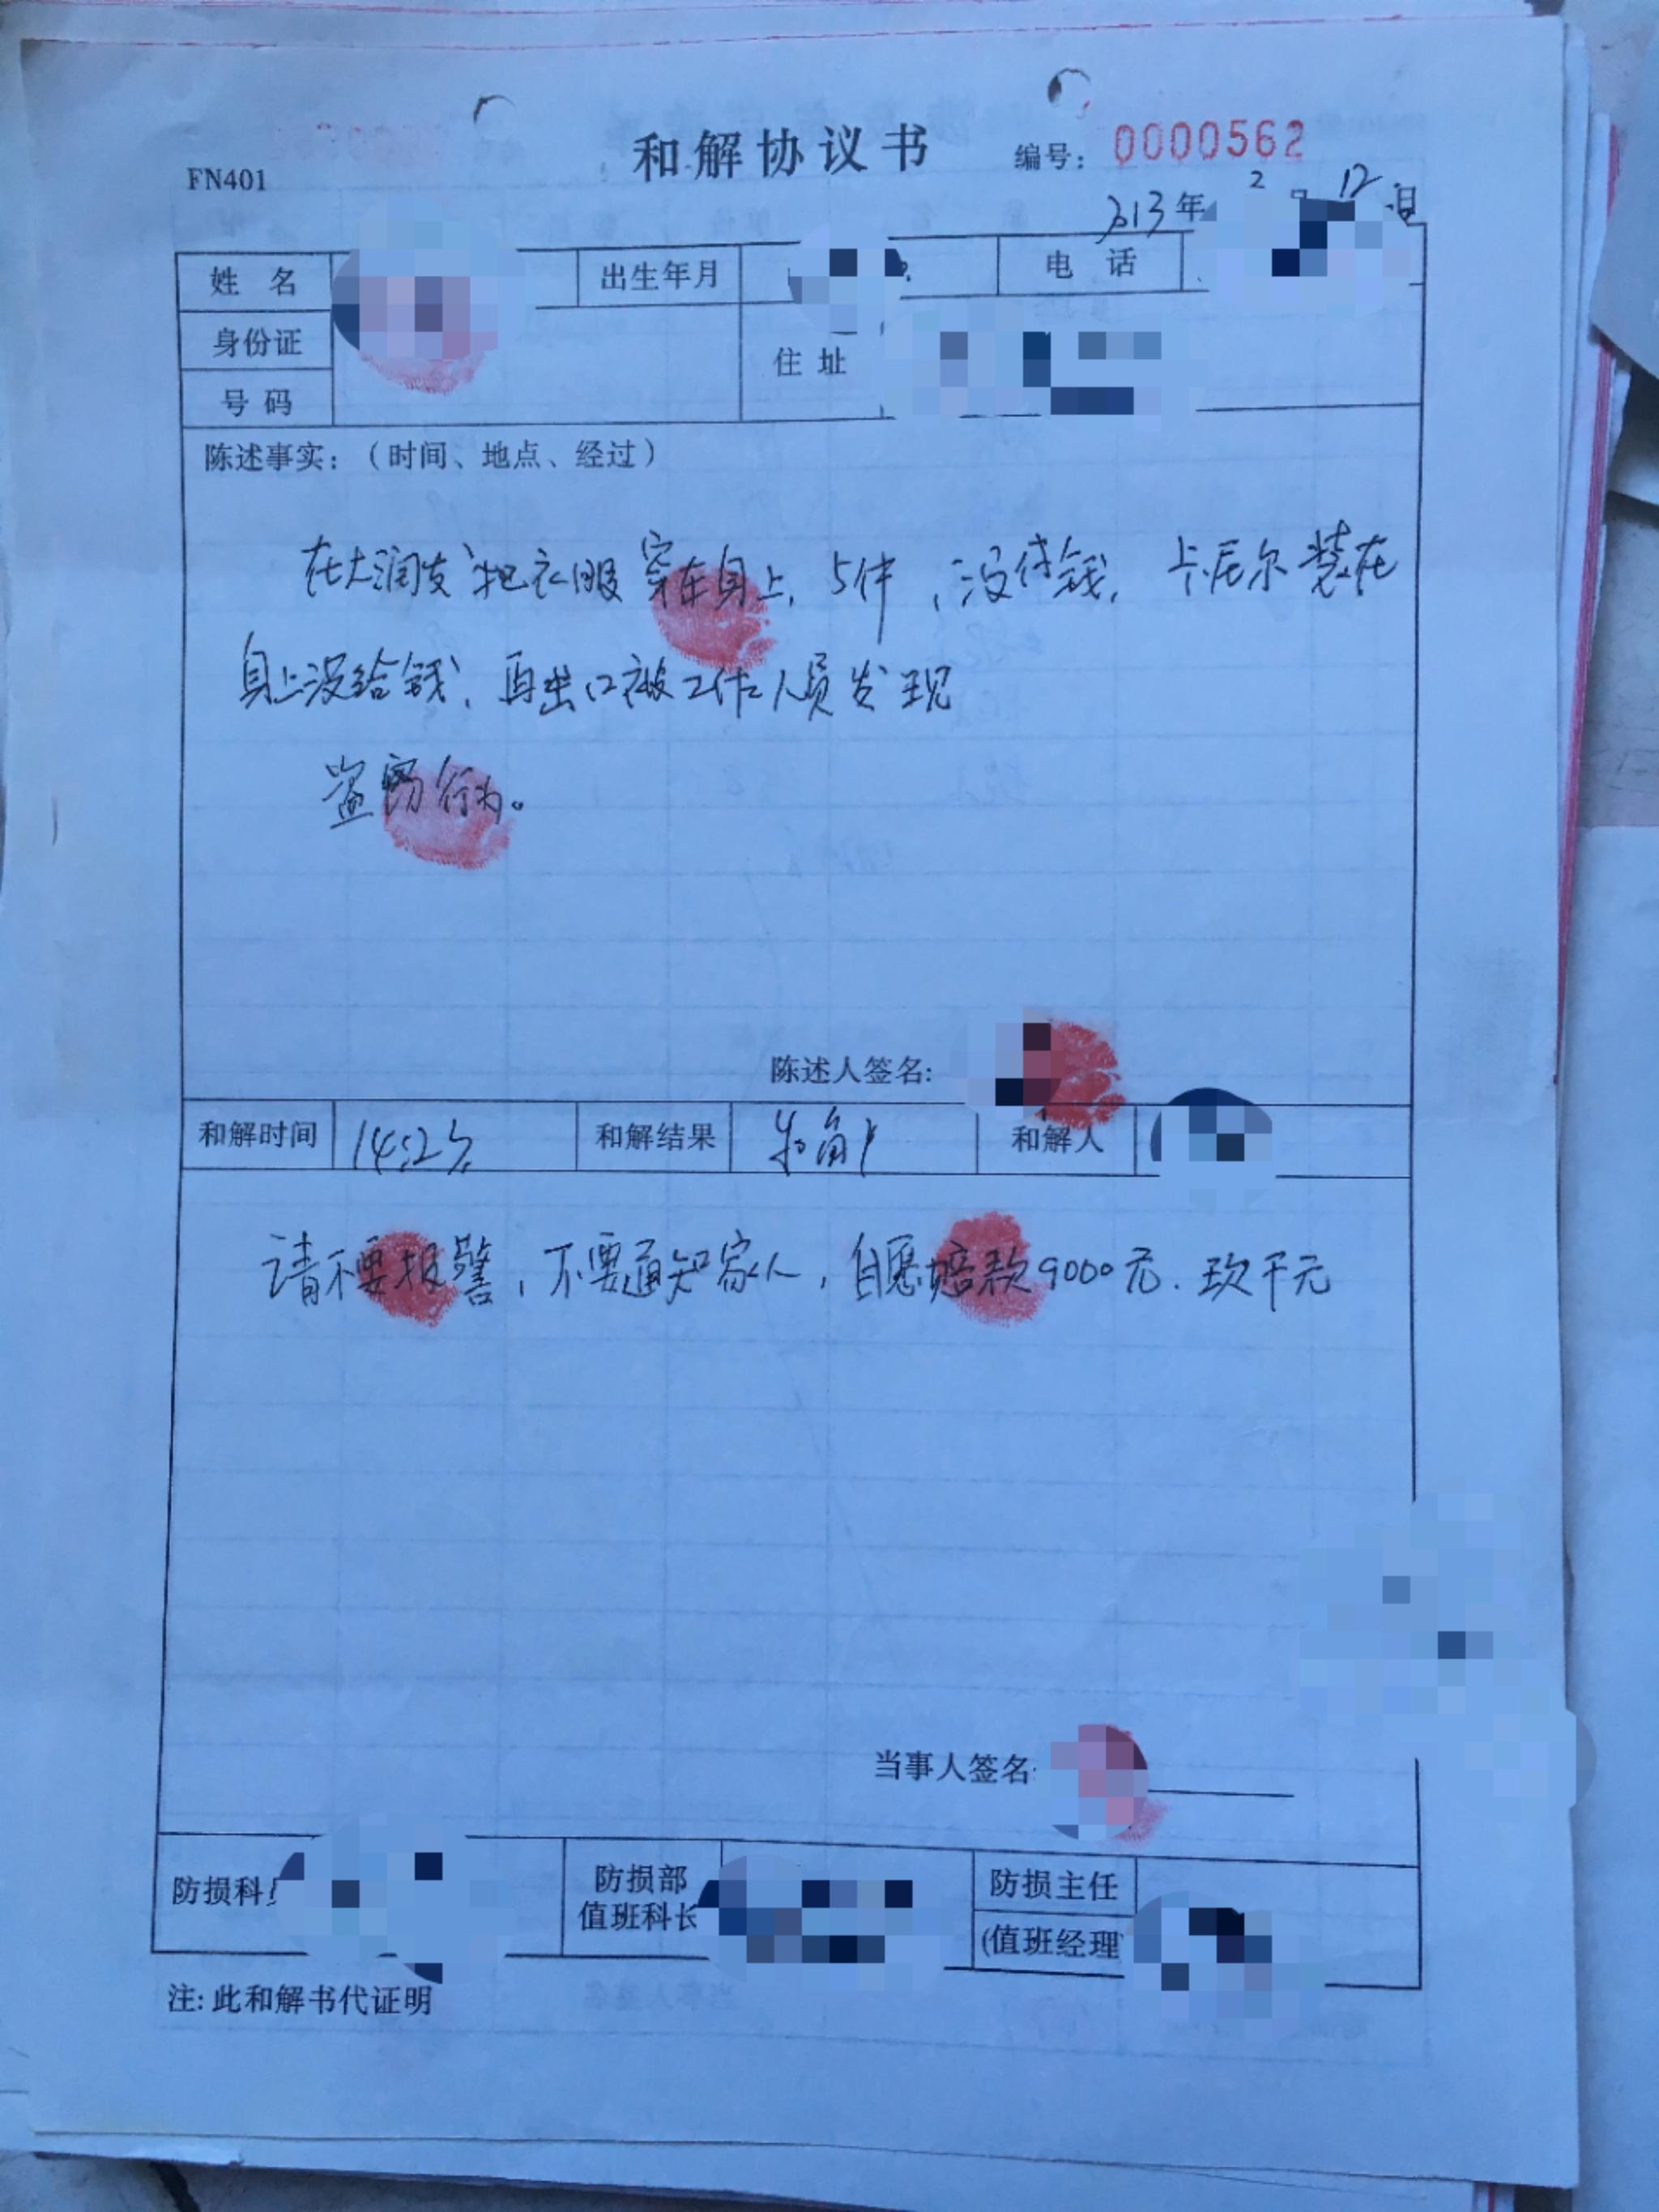 和解协议书
FN401
编号: 0000562
2013年 2月 12日
姓 名
出生年月
电 话
身份证
号 码
住 址
陈述事实:(时间、地点、经过)
在大润发把衣服穿在身上,5件,没付钱,卡尼尔装在
身上没给钱,再出口被工作人员发现
盗窃行为。
陈述人签名:
和解时间
和解结果
和解人
请不要报警,不要通知家人,自愿赔款9000元.玖千元
当事人签名:
防损科员
防损部
值班科长
防损主任
(值班经理)
注:此和解书代证明